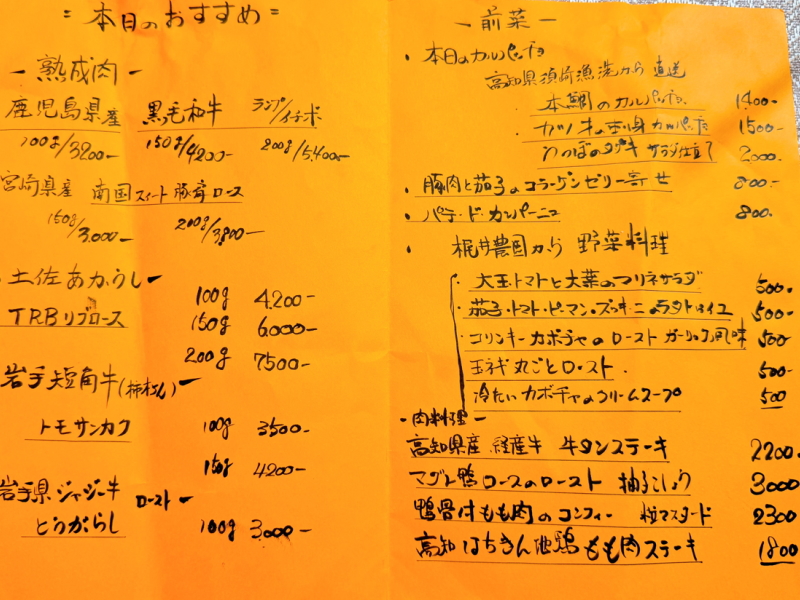 = 本日のおすすめ =
- 熟成肉 -
鹿児島県産 黒毛和牛 ランプ/イチボ
100g/3200- 150g/4200- 200g/5,400-
宮崎県産 南国スィート豚肩ロース
150g/3,000- 200g/3,800-
・土佐あかうし-
100g 4,200-
TRBリブロース 150g 6,000-
200g 7500-
岩手短角牛(柿木さん)-
トモサンカク 100g 3500-
150g 4200-
岩手県ジャージー牛 ロースト -
とうがらし 100g 3,000-
- 前菜 -
・本日のカルパッチョ
高知県須崎漁港から直送
本鯛のカルパッチョ 1400-
・カツオの カルパッチョ 1500-
うつぼのタタキ サラダ仕立て 2,000-
・豚肉と茄子のコラーゲンゼリー寄せ 800-
・パテ・ド・カンパーニュ 800-
・梶井農園から 野菜料理
・大玉トマトと大葉のマリネサラダ 500-
・茄子・トマト・ピーマン・ズッキーニのラタトゥイユ 500-
・コリンキーカボチャのローストガーリック風味 500-
玉ネギ丸ごとロースト. 500-
冷たいカボチャのクリームスープ 500
- 肉料理 -
高知県産 経産牛 牛タンステーキ 2200-
マグレ鴨ロースのロースト 柚子こしょう 3000
鴨骨付もも肉のコンフィー 粒マスタード 2300
高知はちきん地鶏もも肉ステーキ 1800